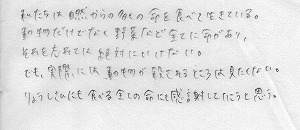 私たちは自然からの多くの命を食べて生きている。
動物だけでなく野菜など全てに命があり、
それを忘れては絶対にいけない。
でも、実際には動物が殺されるところは見たくない。
りょうしさんにも食べる全ての命にも感謝してたこうと思う。